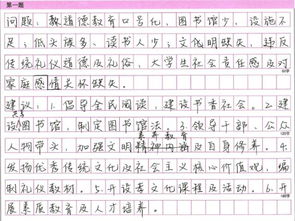 第一题
问题：教道德教育口号化，图书馆少，设施不
足；低头族多，读书人少；文化明缺失，违反
传统美德及礼俗，大学生社会责任感及对
家庭感情关怀缺失。
建议：1.倡导全民阅读，建设书香社会。2.建
共享
设图书馆，制定图书馆法。3.领导干部、公众
素养教育
人物带头，加强文明精神内涵及自身修养。4.
发扬优秀传统文化及社会主义核心价值观，编
制礼仪教材。5.开设孝文化课程及活动。6.开
展素质教育及人才培养。